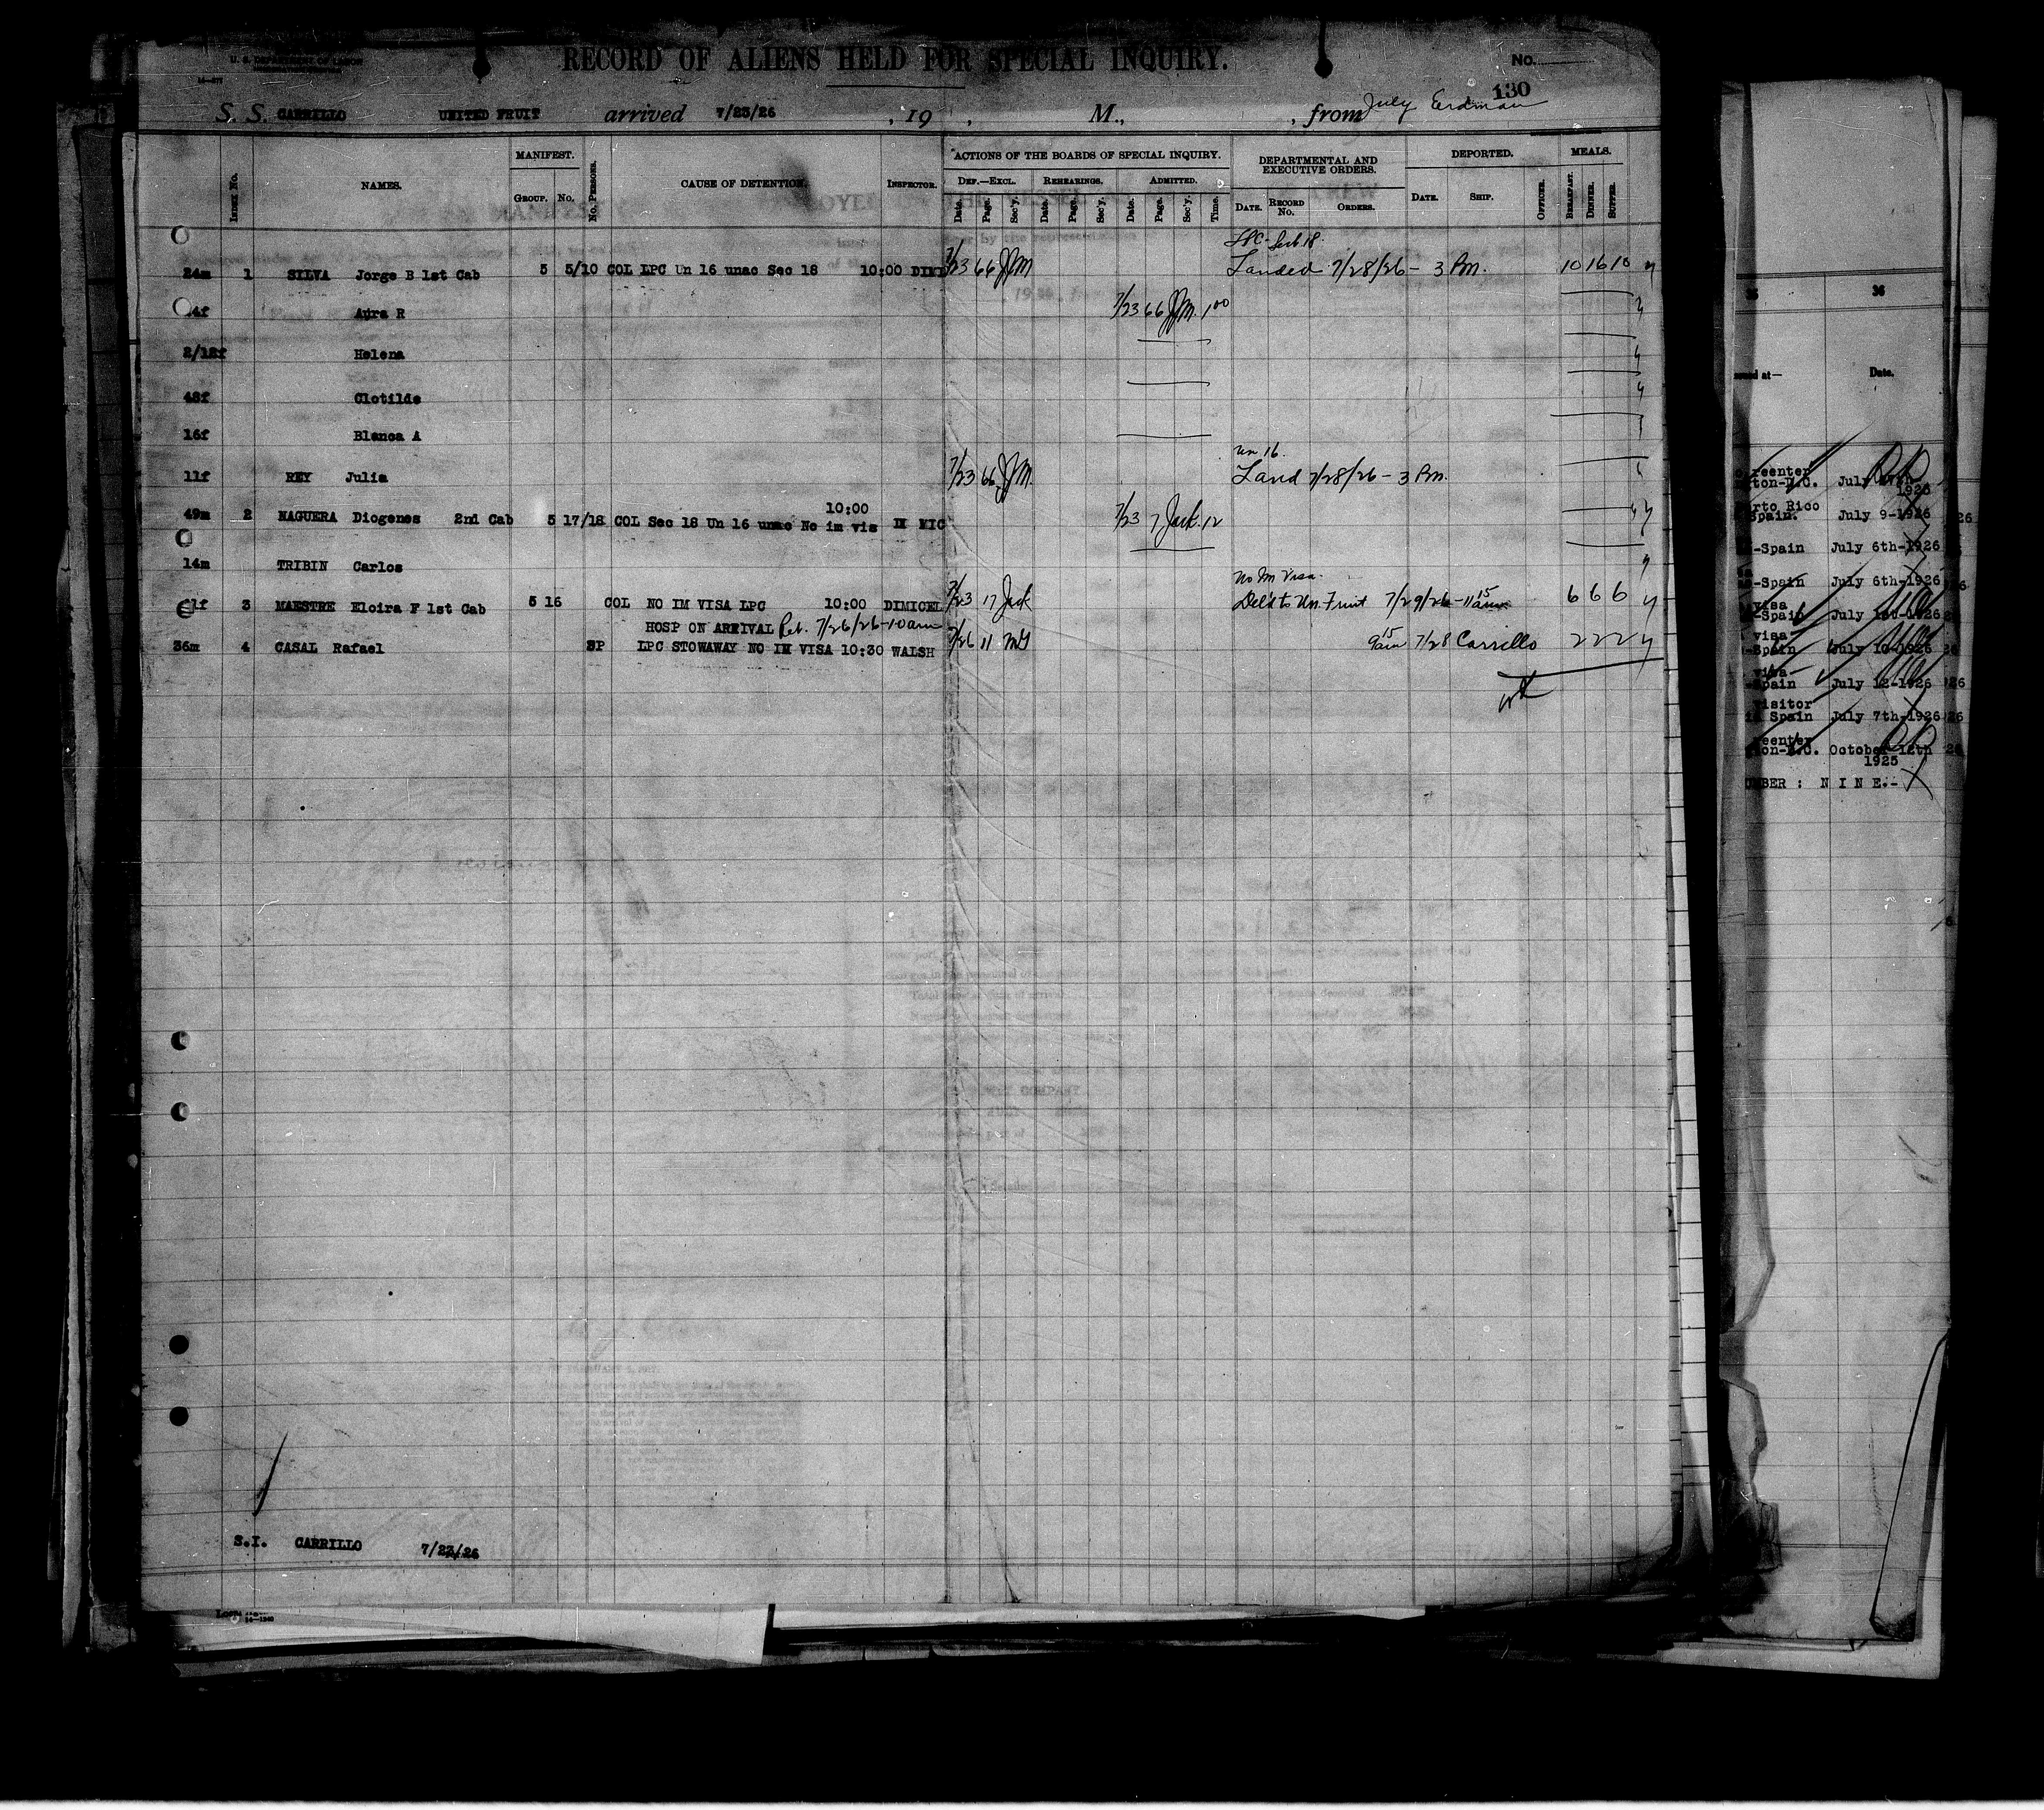 U. S. DEPARTMENT OF LABOR
RECORD OF ALIENS HELD FOR SPECIAL INQUIRY.
No.
130
S. S. CARRILLO UNITED FRUIT arrived 7/23/26 , 19 , M., , from July Erdman
INDEX No. NAMES. MANIFEST. GROUP. No. No. PERSONS. CAUSE OF DETENTION. INSPECTOR. ACTIONS OF THE BOARDS OF SPECIAL INQUIRY. DEPARTMENTAL AND EXECUTIVE ORDERS. DEPORTED. MEALS.
DEF.—EXCL. REHEARINGS. ADMITTED.
Date. Page. Sec'y. Date. Page. Sec'y. Date. Page. Sec'y. Time. DATE. RECORD No. ORDERS. DATE. SHIP. OFFICER. BREAKFAST. DINNER. SUPPER.
LPC-Sect 18.
24m 1 SILVA Jorge B 1st Cab 5 5/10 COL LPC Un 16 unac Sec 18 10:00 7/23 66 JJM Landed 7/28/26 - 3 Pm. 10 16 10
4f Aura R 7/23 66 JJM. 1 00
2/12f Helena
48f Clotilde
16f Blanca A
Un 16.
11f REY Julia 7/23 66 JJM. Land 7/28/26 - 3 Pm.
10:00
49m 2 NAGUERA Diogenes 2nd Cab 5 17/18 COL Sec 18 Un 16 unac No im vis 7/23 7 Jack. 12
14m TRIBIN Carlos
No Im Visa.
3 MAESTRE Eloira F 1st Cab 5 16 COL NO IM VISA LPC 10:00 DIMICEL 7/23 17 Jack Del'd to Un. Fruit 7/29/26 - 11 15 am 6 6 6
HOSP ON ARRIVAL Ret. 7/26/26 - 10 am
36m 4 CASAL Rafael SP LPC STOWAWAY NO IM VISA 10:30 WALSH 7/26 11 9 15 am 7/28 Carrillo 2 2 2
S.I. CARRILLO 7/23/26
36
Date.
reenter
ton-D.C. July
1926
Porto Rico
Spain. July 9-1926
-Spain July 6th-1926
-Spain July 6th-1926
visa
-Spain
visa
-Spain July 10-1926
visa
-Spain July 12-1926
visitor
Spain July 7th-1926
reenter
ton-D.C. October 12th
1925
MBER : N I N E.-